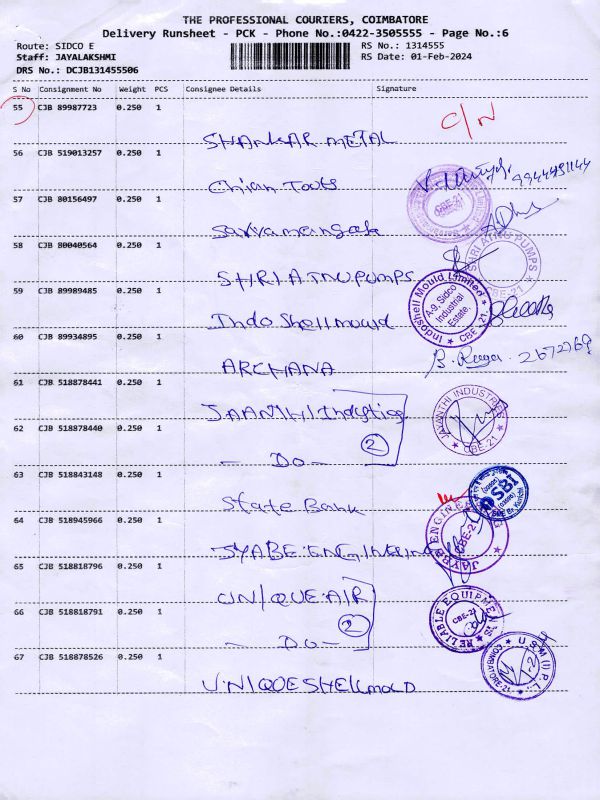 THE PROFESSIONAL COURIERS, COIMBATORE
Delivery Runsheet - PCK - Phone No.:0422-3505555 - Page No.:6
Route: SIDCO E
RS No.: 1314555
Staff: JAYALAKSHMI
RS Date: 01-Feb-2024
DRS No.: DCJB131455506
S No Consignment No Weight PCS Consignee Details Signature
55 CJB 89987723 0.250 1
C/N
SHANKAR METAL
56 CJB 519013257 0.250 1
Chian Tools
9944491144
57 CJB 80156497 0.250 1
CBE-21
58 CJB 80040564 0.250 1
SHRI ATNU PUMPS
SHRI ATNU PUMPS
CBE-21
59 CJB 89989485 0.250 1
Indo Shell mould
Indoshell Mould Limited
A-9, Sidco
Industrial
Estate,
CBE-21.
60 CJB 89934895 0.250 1
ARCHANA
2672769
61 CJB 518878441 0.250 1
JAYANTHI INDUSTRIES
CBE-21
62 CJB 518878440 0.250 1
2
- Do -
63 CJB 518843148 0.250 1
State Bank
SBI
64 CJB 518945966 0.250 1
JYABE:ENGINEERING
CBE-21
65 CJB 518818796 0.250 1
UNIQUE:AIR
66 CJB 518818791 0.250 1
2
- Do -
RELIABLE EQUIPMENTS
CBE-21
67 CJB 518878526 0.250 1
UNIQUESHELLMOLD
U.S.M (I) P.L
COIMBATORE-21